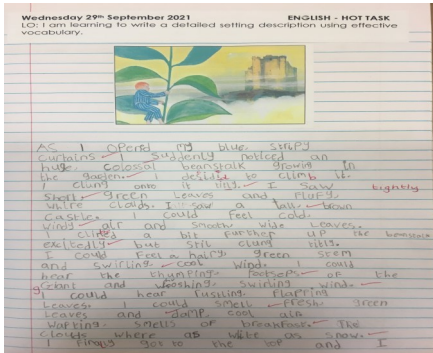 Wednesday 29th September 2021 ENGLISH - HOT TASK
LO: I am learning to write a detailed setting description using effective
vocabulary.
As I Opend my blue, stripy
curtains I Suddenly noticed an
huge, colossal beanstalk growing in
the garden. I desided to climb it.
I clung onto it I saw tightly
green leaves and fluffy,
white clouds. I saw a tall, brown
castle. I could feel cold,
windy air and smooth, wide leaves.
I climed a bit further up the beanstalk
excitedly but still clung
I could feel a hairy, green stem
and swirling cool wind. I could
hear the thumping footseps of the
g and wooshing, swirling wind.
I could hear rusling, flapping
leaves. I could smell fresh green
leaves and damp, cool air
wafting smells of breakfast. The
clouds where as wite as snow.
I finaly got to the top and I